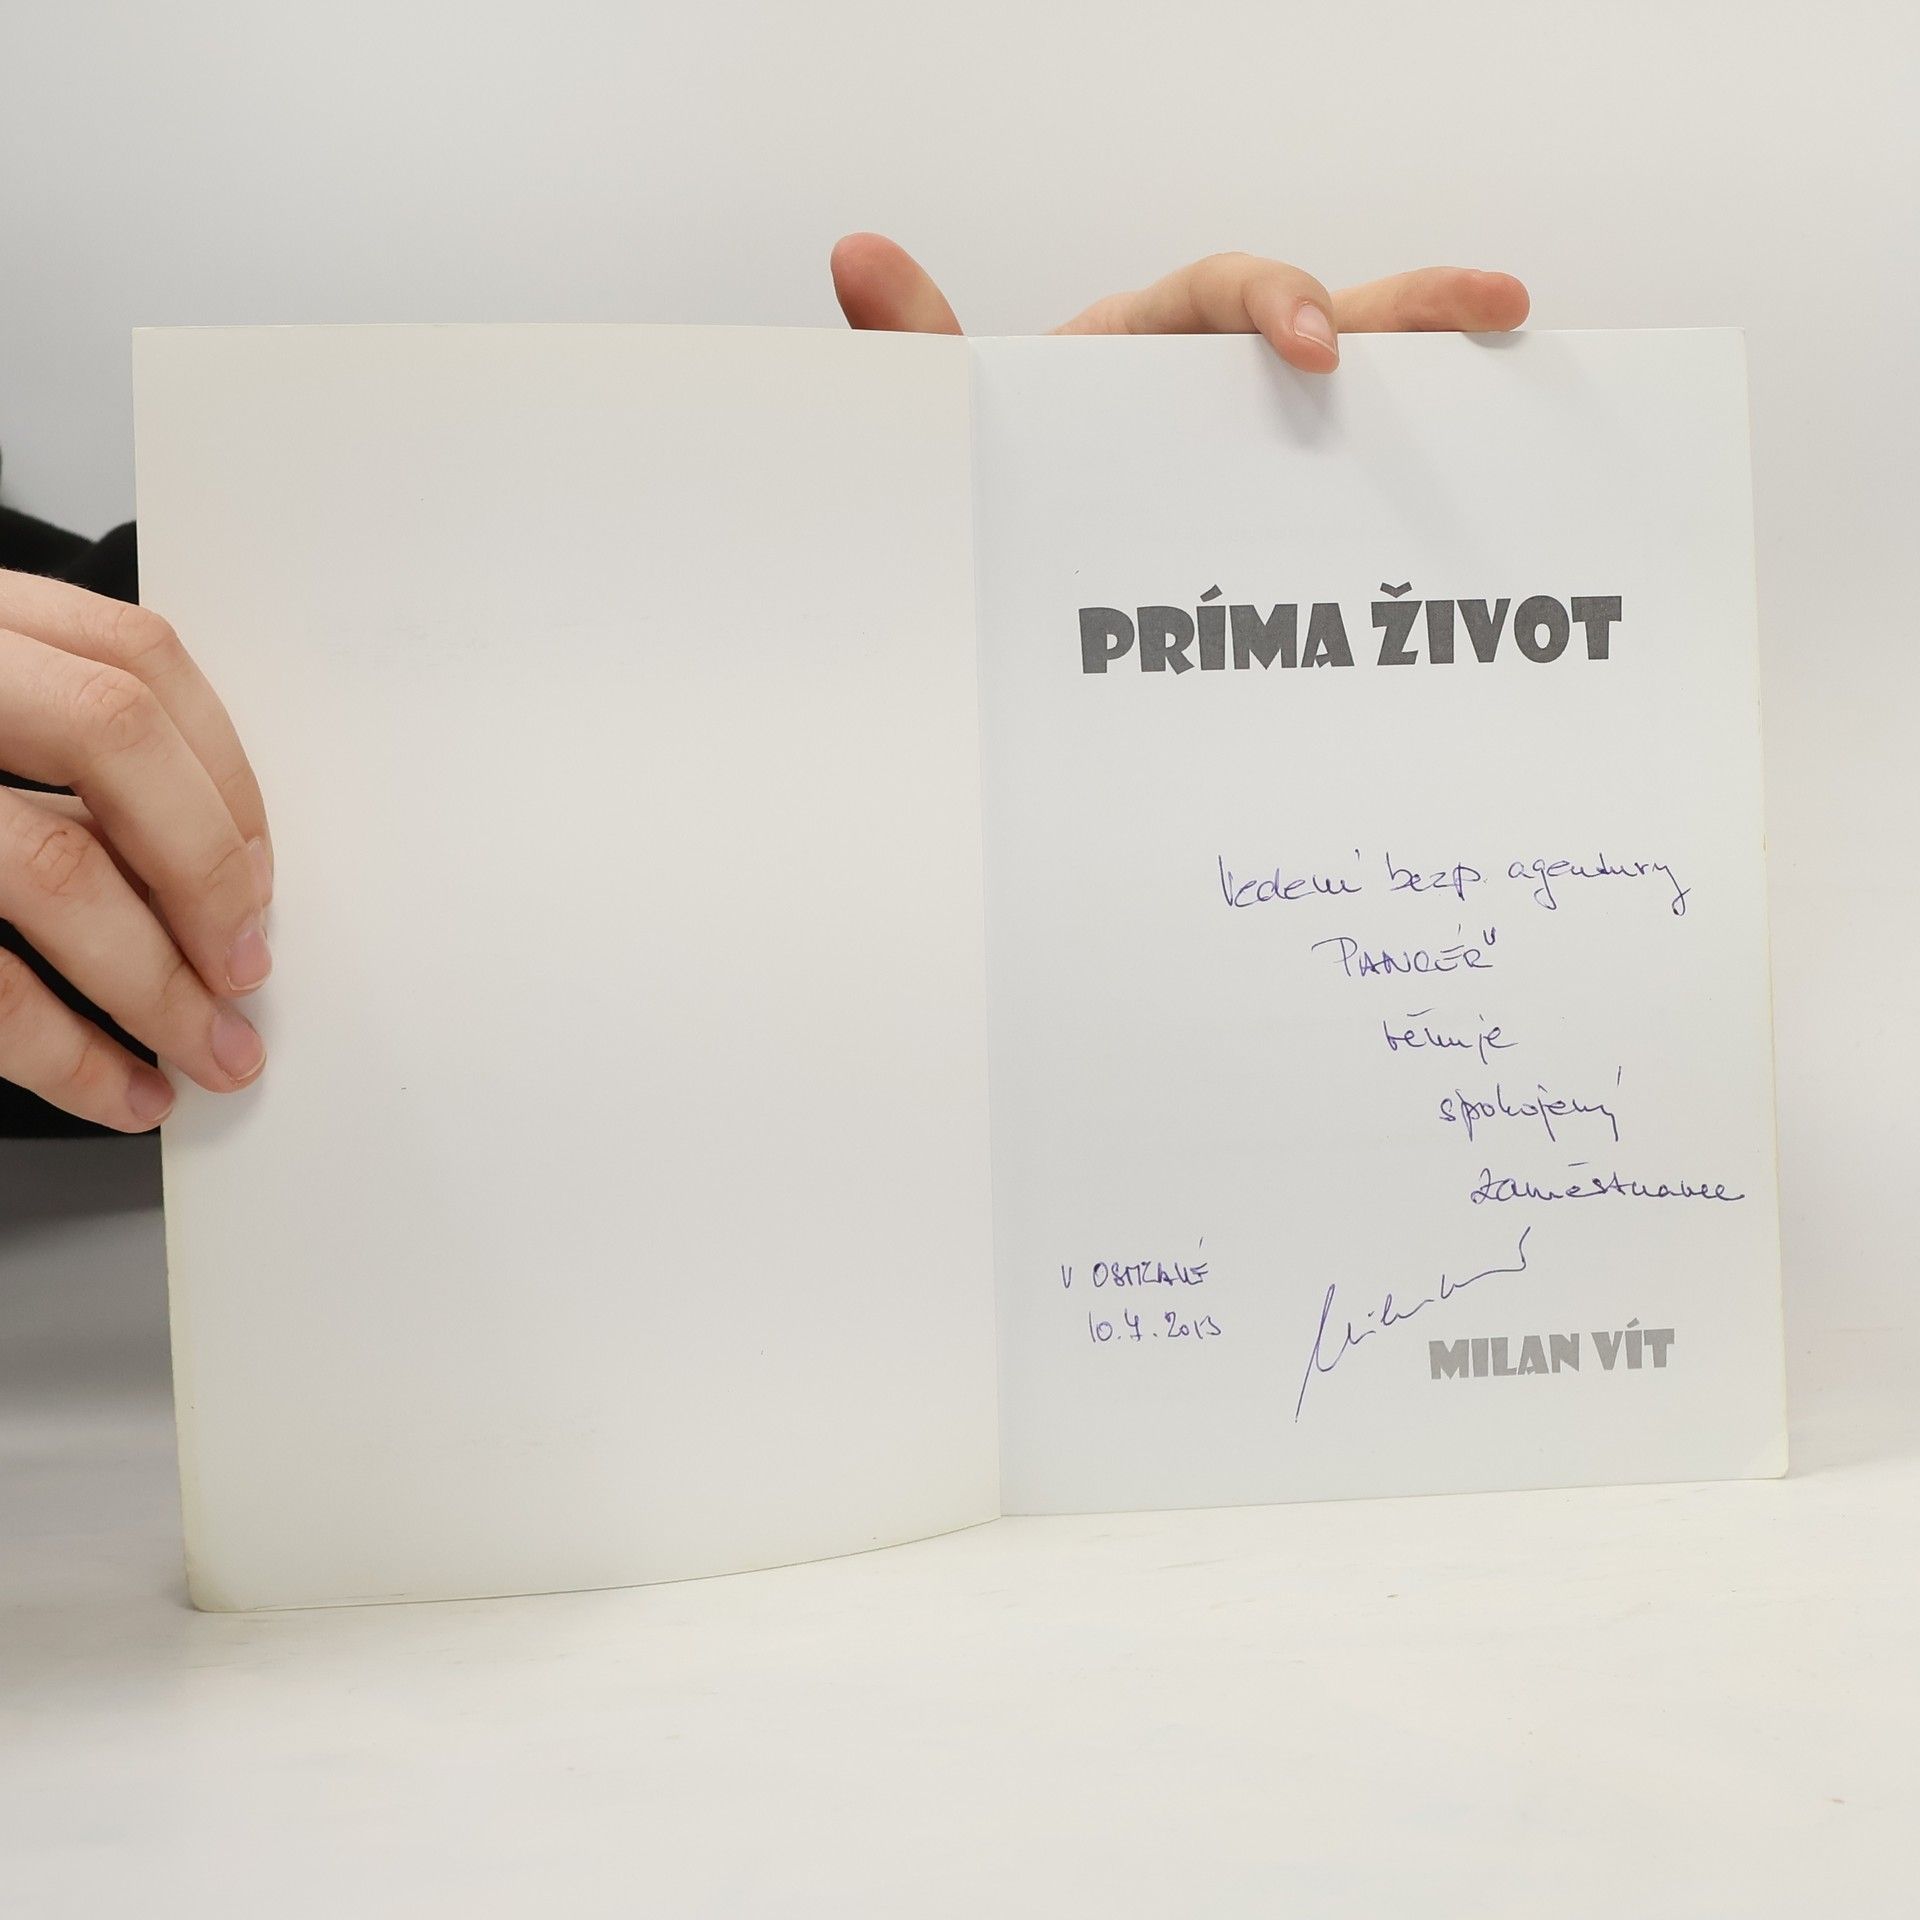 PRÍMA ŽIVOT
Vedení bezp. agentury
PANCÉŘ
věnuje
spokojený
zaměstnanec
V OSMZAKÉ
10.7.2013
MILAN VÍT